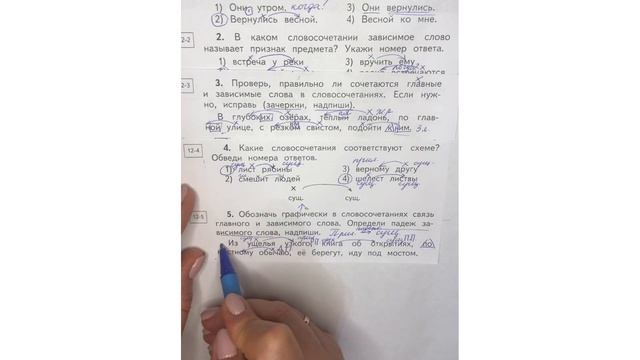 1) Они утром, когда? 3) Они вернулись.
2) Вернулись весной. 4) Весной ко мне.
12-2
2. В каком словосочетании зависимое слово
называет признак предмета? Укажи номер ответа.
1) встреча у реки 3) вручить ему
12-3
3. Проверь, правильно ли сочетаются главные
и зависимые слова в словосочетаниях. Если нуж-
но, исправь (зачеркни, надпиши).
В глубоких озёрах, тёплый ладонь, по глав-
ной улице, с резком свистом, подойти к ним.
12-4
4. Какие словосочетания соответствуют схеме?
Обведи номера ответов.
сущ. сущ. прил. сущ.
1) лист рябины 3) верному другу
2) смешит людей 4) шелест листвы
сущ. сущ.
× сущ. сущ.
12-5
5. Обозначь графически в словосочетаниях связь
главного и зависимого слова. Определи падеж за-
висимого слова, надпиши. Прил. сущ.
Из ущелья узкого, книга об открытиях, по
местному обычаю, её берегут, иду под мостом.